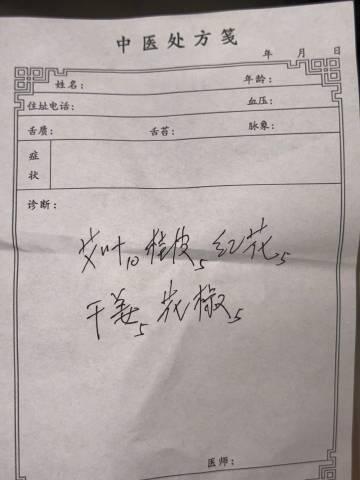 中医处方笺
年 月 日
姓名: 年龄:
住址电话: 血压:
舌质: 舌苔: 脉象:
症状
诊断:
艾叶10 桂皮5 红花5
干姜5 花椒5
医师: